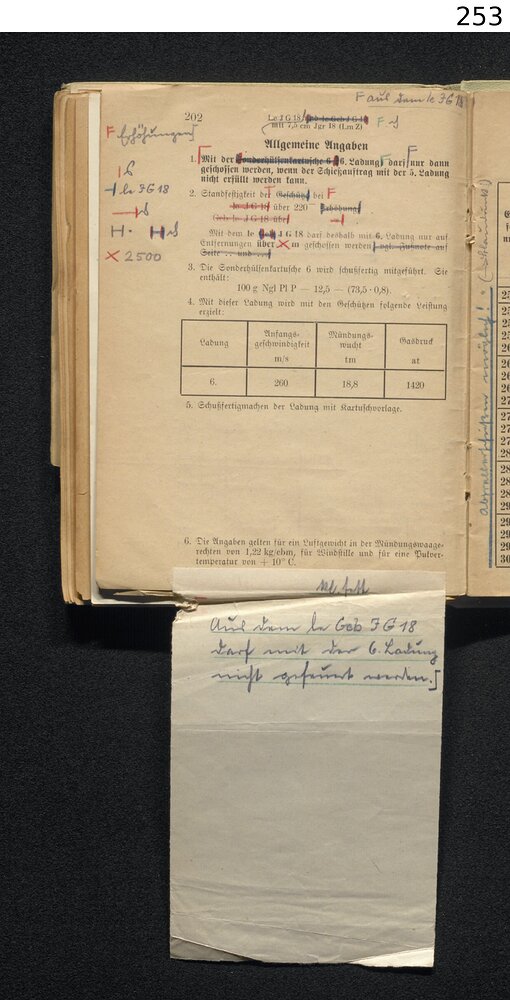 253
F aus dem le JG 18
202
Le J G 18
mit 7,5 cm Jgr 18 (LmZ)
F Erhöhungen]
Allgemeine Angaben
1. Mit der Sonderhülsenkartusche 6 6. Ladung darf nur dann
geschossen werden, wenn der Schießauftrag mit der 5. Ladung
nicht erfüllt werden kann.
le JG 18
2. Standfestigkeit des Geschütz bei F
le J G 18 über 220 Erhöhung
Geb le G 18 über
Mit dem le J G 18 darf deshalb mit 6. Ladung nur auf
Entfernungen über X m geschossen werden vgl. Fußnote auf
Seite .. und ..
X 2500
3. Die Sonderhülsenkartusche 6 wird schußfertig mitgeführt. Sie
enthält:
100 g Ngl Pl P — 12,5 — (73,5 · 0,8).
4. Mit dieser Ladung wird mit den Geschützen folgende Leistung
erzielt:
Ladung | Anfangsgeschwindigkeit m/s | Mündungswucht tm | Gasdruck at
6. | 260 | 18,8 | 1420
5. Schußfertigmachen der Ladung mit Kartuschvorlage.
6. Die Angaben gelten für ein Luftgewicht in der Mündungswaage-
rechten von 1,22 kg/cbm, für Windstille und für eine Pulver-
temperatur von + 10° C.
kl. fett
Aus dem le Geb JG 18
darf mit der 6. Ladung
nicht gefeuert werden.]